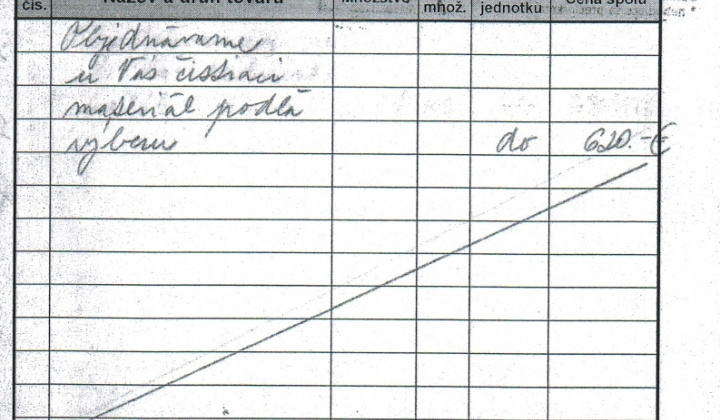 čís. Názov a druh tovaru Množstvo množ. jednotku Cena spolu
Objednávame
u Vás čistiaci
materiál podľa
výberu do 620.-€